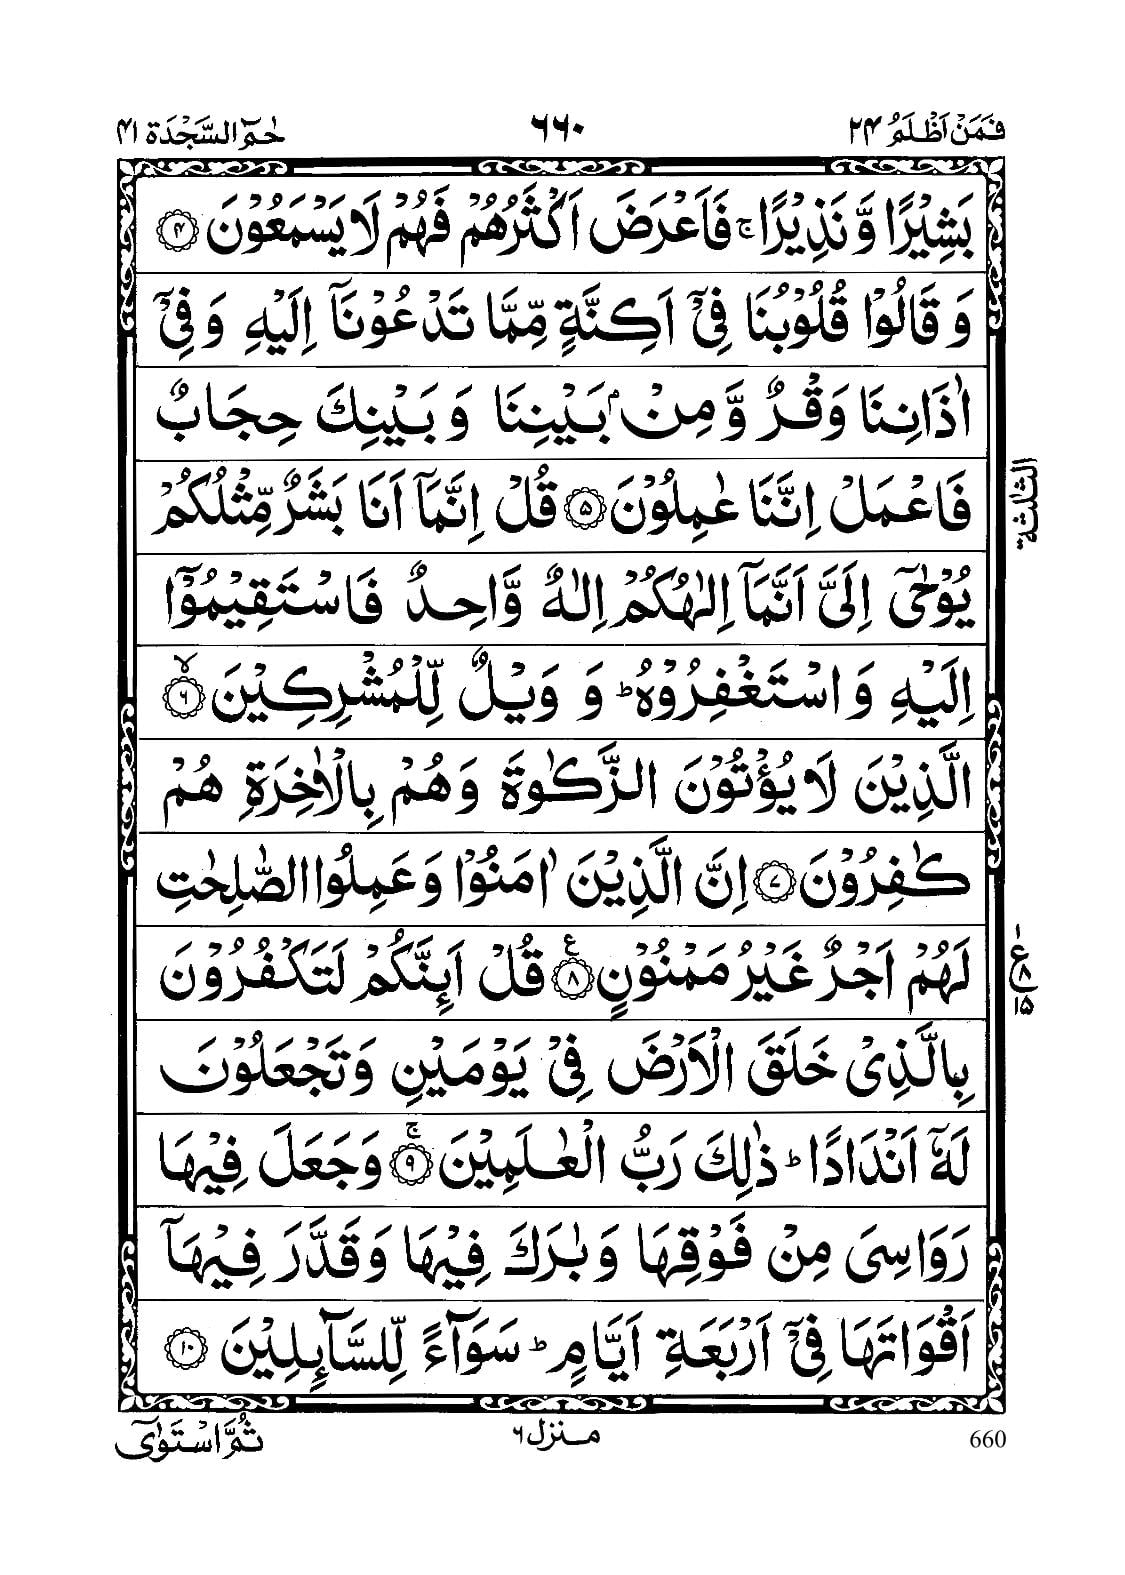 فَمَنۡ اَظۡلَمُ ۲۴
۶۶۰
حٰمٓ السَّجۡدَة ۴۱
بَشِيۡرًا وَّ نَذِيۡرًا ۚ فَاَعۡرَضَ اَكۡثَرُهُمۡ فَهُمۡ لَا يَسۡمَعُوۡنَ ۴
وَ قَالُوۡا قُلُوۡبُنَا فِىۡۤ اَكِنَّةٍ مِّمَّا تَدۡعُوۡنَاۤ اِلَيۡهِ وَ فِىۡۤ
اٰذَانِنَا وَقۡرٌ وَّ مِنۡۢ بَيۡنِنَا وَ بَيۡنِكَ حِجَابٌ
فَاعۡمَلۡ اِنَّنَا عٰمِلُوۡنَ ۵ قُلۡ اِنَّمَاۤ اَنَا بَشَرٌ مِّثۡلُكُمۡ
يُوۡحٰٓى اِلَىَّ اَنَّمَاۤ اِلٰهُكُمۡ اِلٰهٌ وَّاحِدٌ فَاسۡتَقِيۡمُوۡۤا
اِلَيۡهِ وَ اسۡتَغۡفِرُوۡهُ ؕ وَ وَيۡلٌ لِّلۡمُشۡرِكِيۡنَ ۙ ۶
الَّذِيۡنَ لَا يُؤۡتُوۡنَ الزَّكٰوةَ وَ هُمۡ بِالۡاٰخِرَةِ هُمۡ
كٰفِرُوۡنَ ۷ اِنَّ الَّذِيۡنَ اٰمَنُوۡا وَ عَمِلُوا الصّٰلِحٰتِ
لَهُمۡ اَجۡرٌ غَيۡرُ مَمۡنُوۡنٍ ۸ ع قُلۡ اَئِنَّكُمۡ لَتَكۡفُرُوۡنَ
بِالَّذِىۡ خَلَقَ الۡاَرۡضَ فِىۡ يَوۡمَيۡنِ وَ تَجۡعَلُوۡنَ
لَهٗۤ اَنۡدَادًا ؕ ذٰلِكَ رَبُّ الۡعٰلَمِيۡنَ ۚ ۹ وَ جَعَلَ فِيۡهَا
رَوَاسِىَ مِنۡ فَوۡقِهَا وَ بٰرَكَ فِيۡهَا وَ قَدَّرَ فِيۡهَاۤ
اَقۡوَاتَهَا فِىۡۤ اَرۡبَعَةِ اَيَّامٍ ؕ سَوَآءً لِّلسَّآئِلِيۡنَ ۱۰
الثلٰثة
۱
ع ۸
۱۵
ثُمَّ اسۡتَوٰٓى
منزل ۶
660